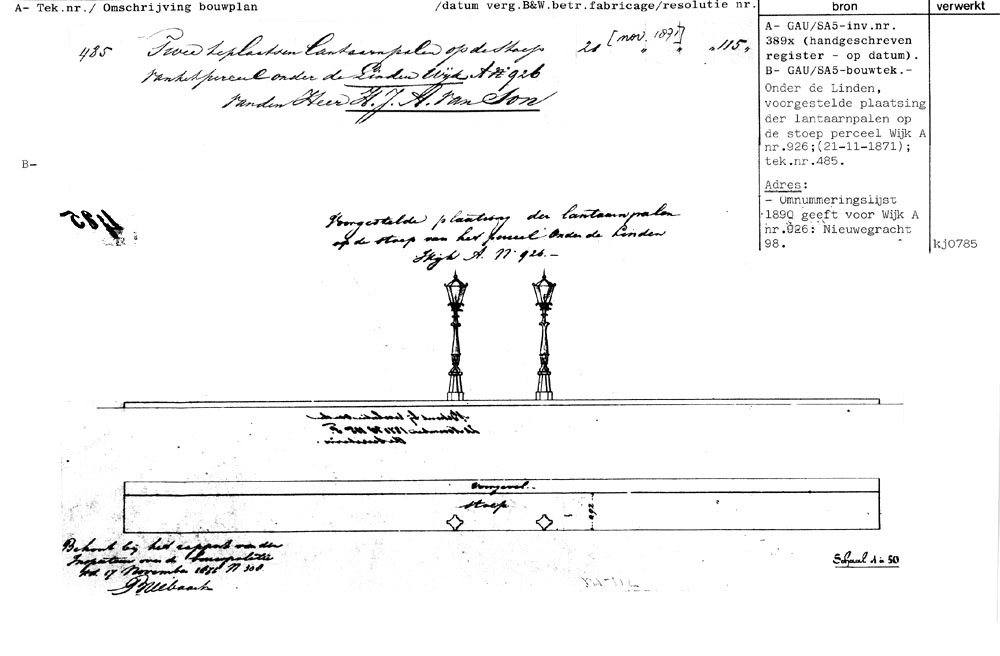 A- Tek.nr./ Omschrijving bouwplan /datum verg.B&W.betr.fabricage/resolutie nr.
bron
verwerkt
485 Twee te plaatsen Lantaarnpalen op de Stoep 21 [nov. 1871] „115„
van het perceel onder de Linden Wijk A No 926
van den Heer H. J. A. van Son
A- GAU/SA5-inv.nr.
389x (handgeschreven
register - op datum).
B- GAU/SA5-bouwtek.-
Onder de Linden,
voorgestelde plaatsing
der lantaarnpalen op
de stoep perceel Wijk A
nr.926;(21-11-1871);
tek.nr.485.
Adres:
- Omnummeringslijst
1890 geeft voor Wijk A
nr.926: Nieuwegracht
98.
kj0785
B-
Voorgestelde plaatsing der lantaarnpalen
op de stoep van het perceel Onder de Linden
Wijk A. No 926.-
Voorgevel.
stoep
Behoort bij het rapport van den
Inspecteur over de bouwpolitie
dd 17 November
Schaal 1 à 50